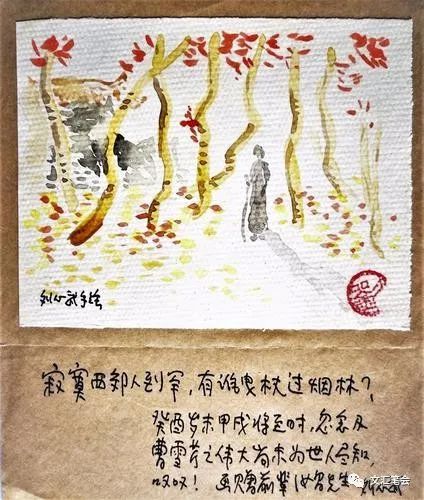 刘心武手绘
寂寞西郊人到罕，有谁曳杖过烟林？
癸酉岁末甲戌将至时，忽念及
曹雪芹之伟大尚未为世人尽知，
叹叹！画赠前辈汝昌先生 刘心武
文汇笔会